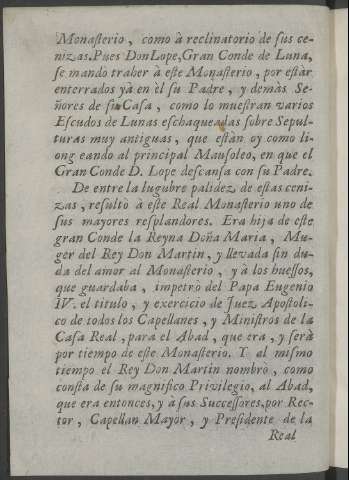 Monaſterio, como à reclinatorio de ſus ce-
nizas. Pues Don Lope, Gran Conde de Luna,
ſe mando traher à eſte Monaſterio, por eſtàr
enterrados yà en èl ſu Padre, y demàs Se-
ñores de ſu Caſa, como lo mueſtran varios
Eſcudos de Lunas eſchaqueadas ſobre Sepul-
turas muy antiguas, que eſtàn oy como li-
ong eando al principal Mauſoleo, en que el
Gran Conde D. Lope deſcanſa con ſu Padre.
De entre la lugubre palidez de eſtas ceni-
zas, reſultò à eſte Real Monaſterio uno de
ſus mayores reſplandores. Era hija de eſte
gran Conde la Reyna Doña Maria, Mu-
ger del Rey Don Martin, y llevada ſin du-
da del amor al Monaſterio, y à los hueſſos,
que guardaba, impetrò del Papa Eugenio
IV. el titulo, y exercicio de Juez Apoſtoli-
co de todos los Capellanes, y Miniſtros de la
Caſa Real, para el Abad, que era, y ſerà
por tiempo de eſte Monaſterio. Y al miſmo
tiempo el Rey Don Martin nombrò, como
conſta de ſu magnifico Privilegio, al Abad,
que era entonces, y à ſus Succeſſores, por Rec-
tor, Capellan Mayor, y Preſidente de la
Real